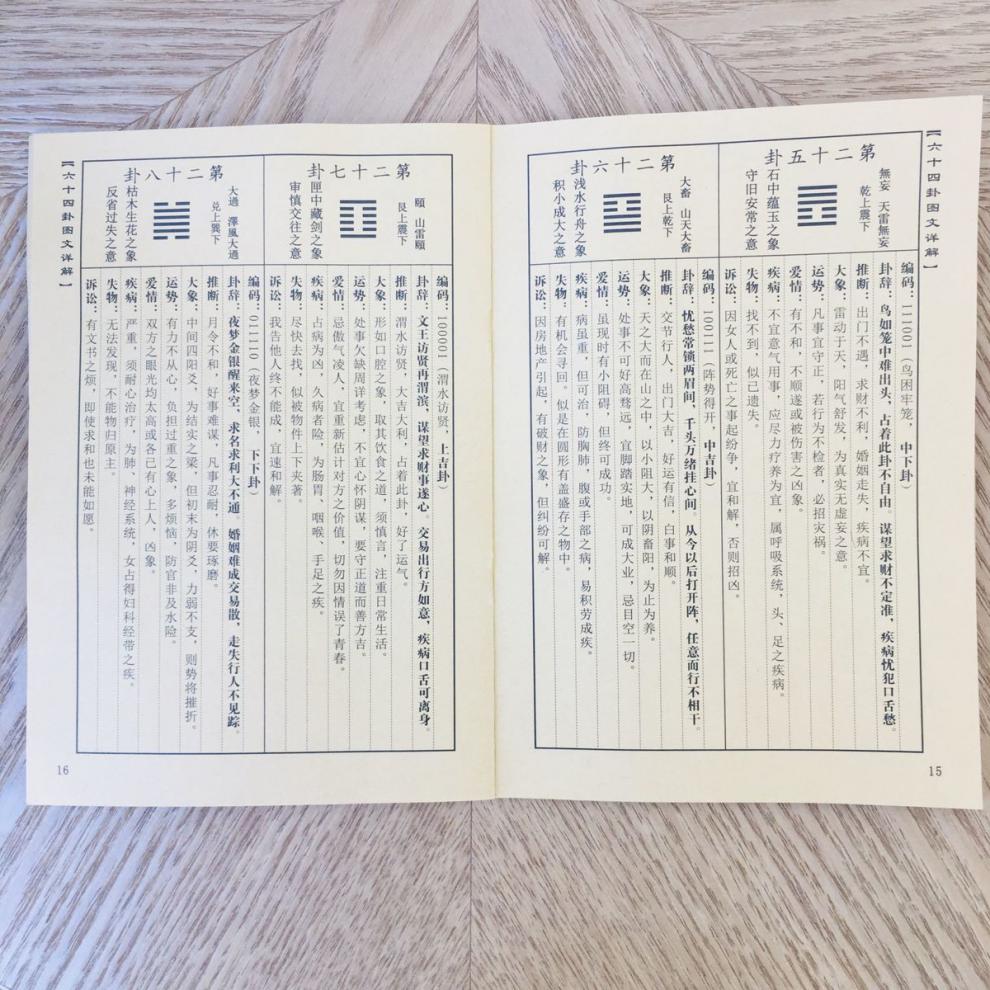 【六十四卦图文详解】
第二十五卦
無妄 天雷無妄
乾上震下
石中蕴玉之象
守旧安常之意
编码：111001（鸟困牢笼，中下卦）
卦辞：鸟如笼中难出头，占着此卦不自由。谋望求财不定准，疾病忧犯口舌愁。
推断：出门不遇，求财不利，婚姻走失，疾病不宜。
大象：雷动于天，阳气舒发，为真实无虚妄之意。
运势：凡事宜守正，若行为不检者，必招灾祸。
爱情：有不和，不顺遂或被伤害之凶象。
疾病：不宜意气用事，应尽力疗养为宜，属呼吸系统，头、足之疾病。
失物：找不到，似已遗失。
诉讼：因女人或死亡之事起纷争，宜和解，否则招凶。
第二十六卦
大畜 山天大畜
艮上乾下
浅水行舟之象
积小成大之意
编码：100111（阵势得开，中吉卦）
卦辞：忧愁常锁两眉间，千头万绪挂心间。从今以后打开阵，任意而行不相干。
推断：交节行人，出门大吉，好运有信，白事和顺。
大象：天之大而在山之中，以小阻大，以阴畜阳，为止为养。
运势：处事不可好高骛远，宜脚踏实地，可成大业，忌目空一切。
爱情：虽现时有小阻碍，但终可成功。
疾病：病虽重，但可治，防胸肺，腹或手部之病，易积劳成疾。
失物：有机会寻回。似是在圆形有盖盛存之物中。
诉讼：因房地产引起，有破财之象，但纠纷可解。
15
第二十七卦
颐 山雷颐
艮上震下
匣中藏剑之象
审慎交往之意
编码：100001（渭水访贤，上吉卦）
卦辞：文王访贤再渭滨，谋望求财事遂心。交易出行方如意，疾病口舌可离身。
推断：渭水访贤，大吉大利，占着此卦，好了运气。
大象：形如口腔之象，取其饮食之道，须慎言，注重日常生活。
运势：处事欠缺周详考虑，不宜心怀阴谋，要守正道而善方吉。
爱情：忌傲气凌人，宜重新估计对方之价值，切勿因情误了青春。
疾病：占病为凶，久病者险，为肠胃，咽喉、手足之疾。
失物：尽快去找，似被物件上下夹著。
诉讼：我告他人终不能成，宜速和解。
第二十八卦
大過 澤風大過
兑上巽下
枯木生花之象
反省过失之意
编码：011110（夜梦金银，下下卦）
卦辞：夜梦金银醒来空，求名求利大不通。婚姻难成交易散，走失行人不见踪。
推断：月令不和，好事难谋，凡事忍耐，休要琢磨。
大象：中间四阳爻，为结实之梁，但初末为阴爻，力弱不支，则势将摧折。
运势：有力不从心，负担过重之象，多烦恼，防官非及水险。
爱情：双方之眼光均太高或各已有心上人，凶象。
疾病：严重，须耐心治疗，为肺，神经系统，女占得妇科经带之疾。
失物：无法发现，不能物归原主。
诉讼：有文书之烦，即使求和也未能如愿。
【六十四卦图文详解】
16